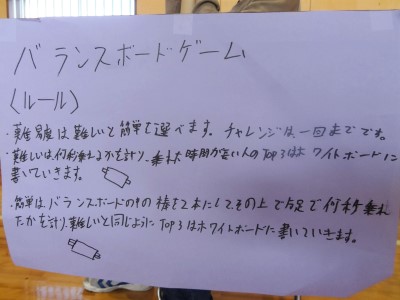 バランスボードゲーム
〈ルール〉
・難易度は難しいと簡単を選べます。チャレンジは一回までです。
・難しいは何秒乗れるかを計り、乗れた時間が長い人のTop3はホワイトボードに
書いていきます。
・簡単は、バランスボードの中の棒を2本にして、その上で片足で何秒乗れ
たかを計り、難しいと同じようにTop3はホワイトボードに書いていきます。